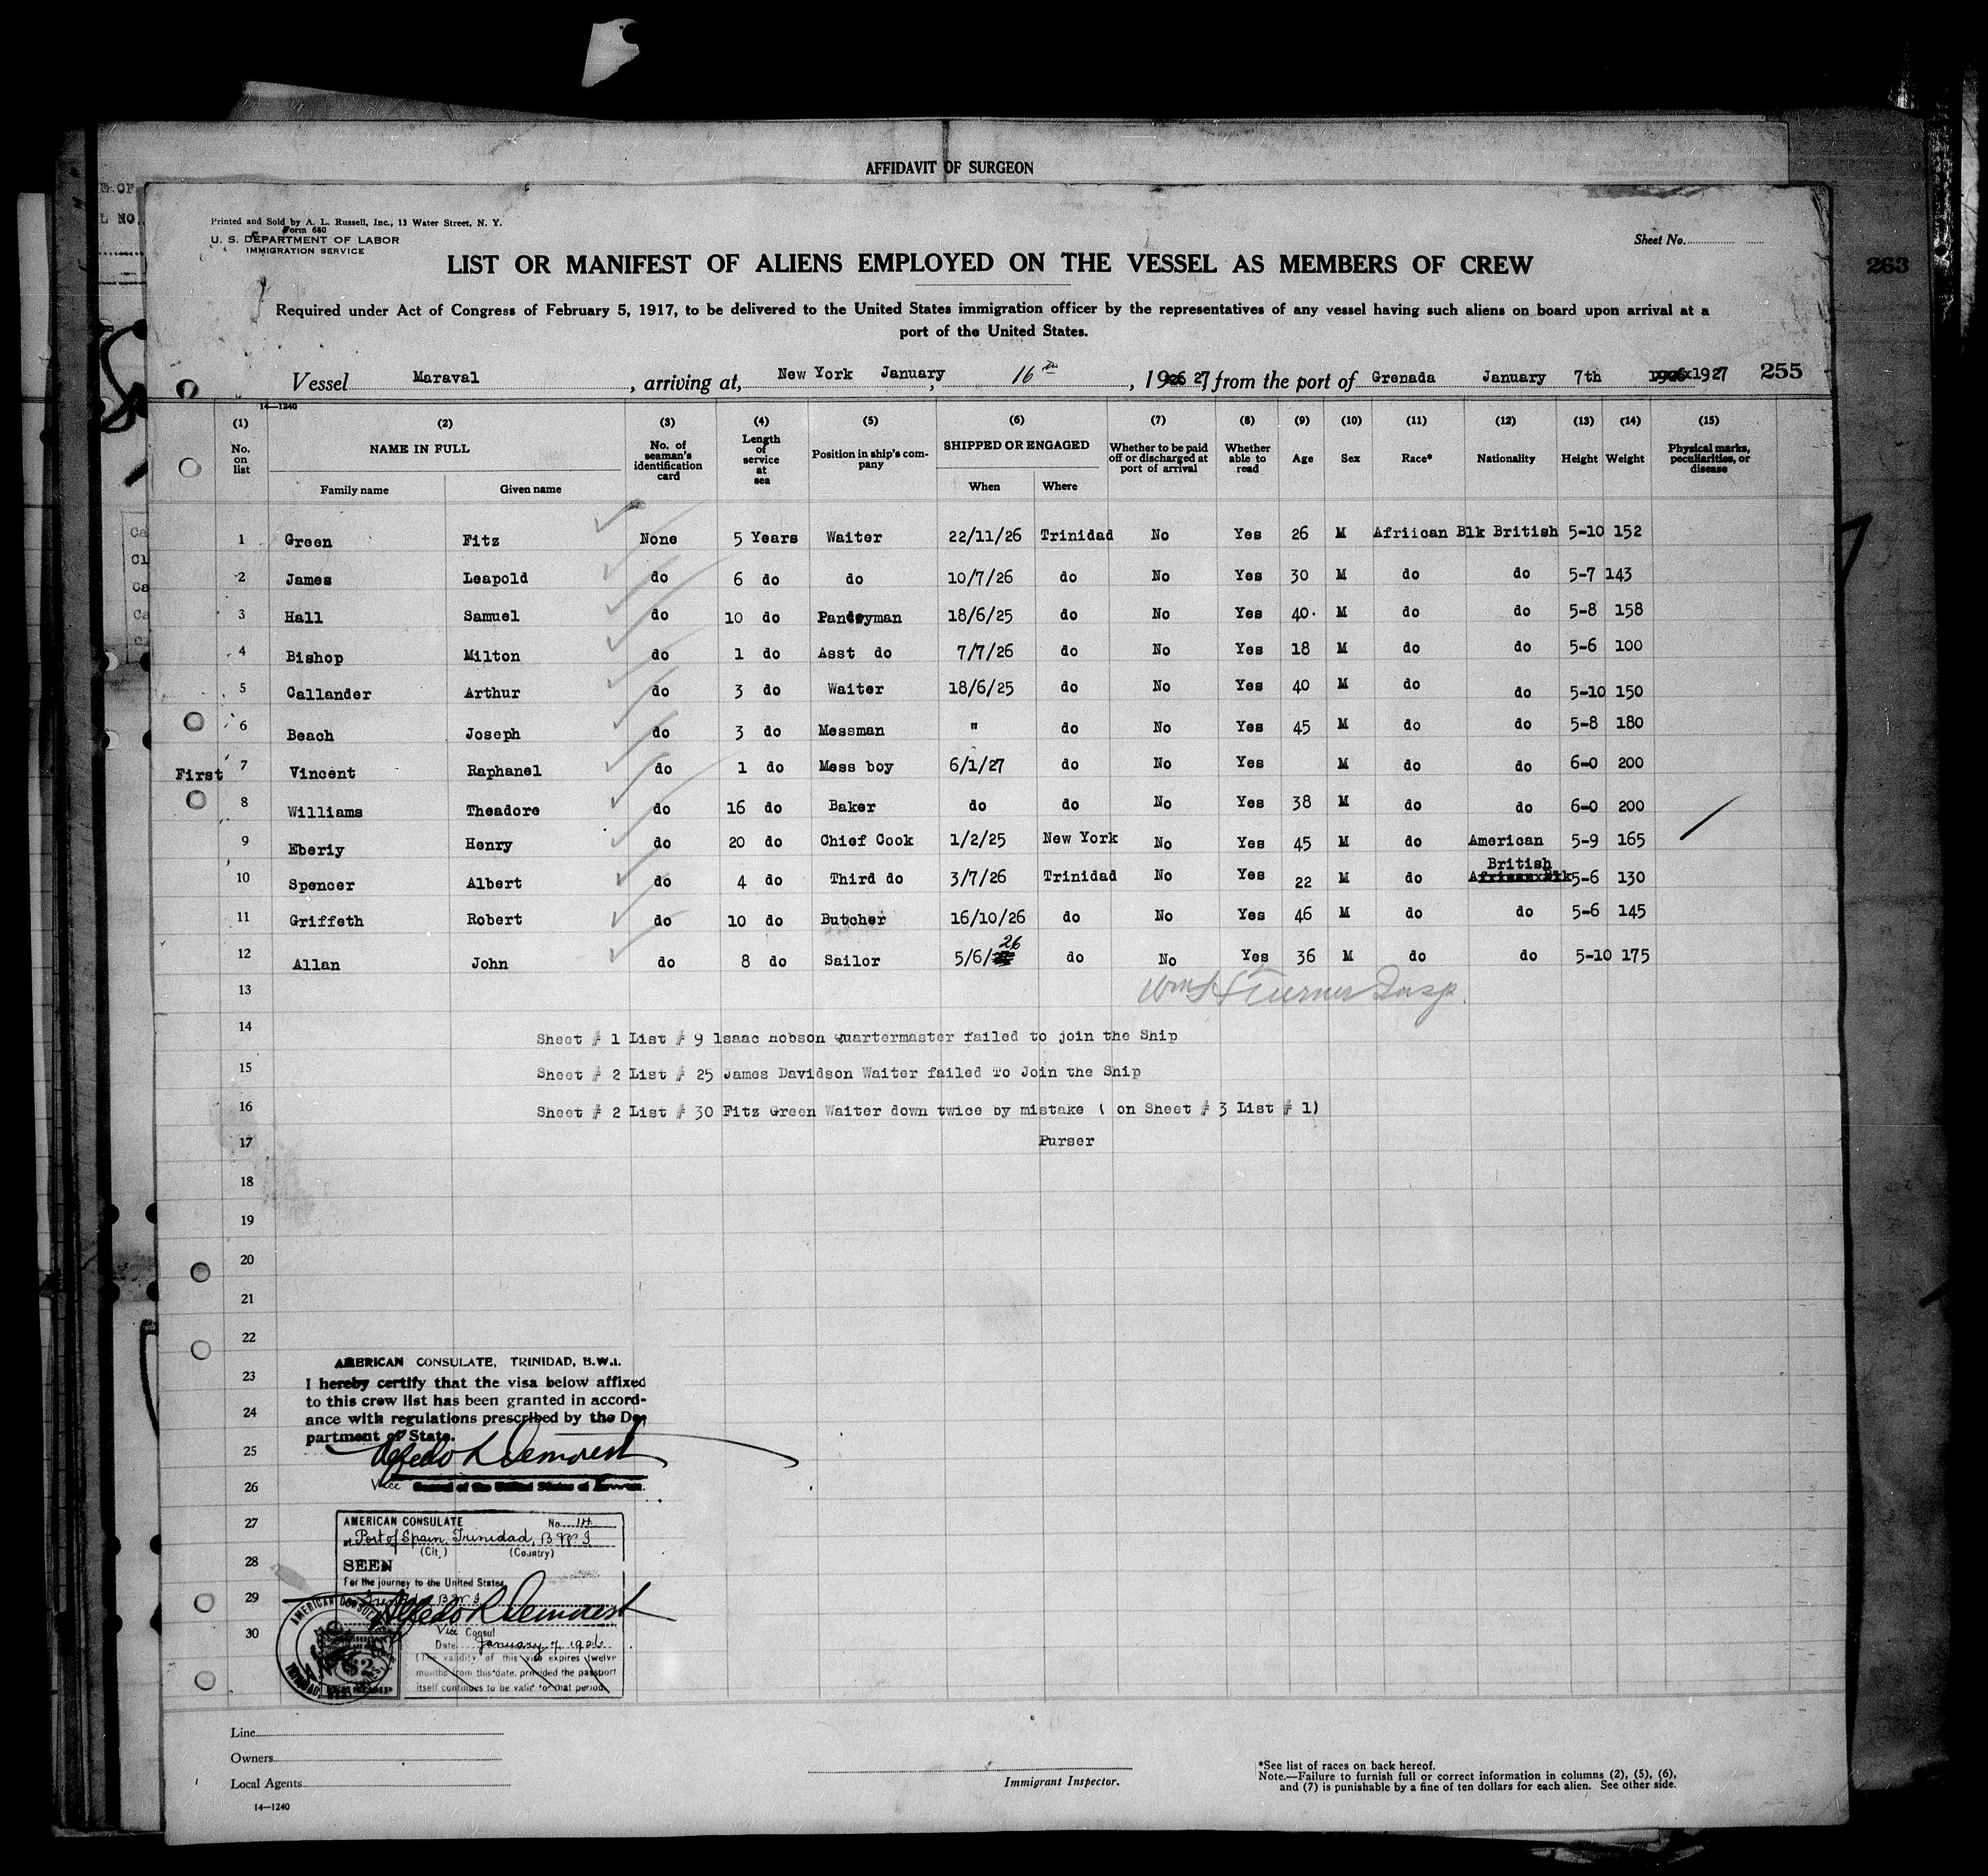 AFFIDAVIT OF SURGEON
Printed and Sold by A. L. Russell, Inc., 13 Water Street, N. Y.
Form 680
U. S. DEPARTMENT OF LABOR
IMMIGRATION SERVICE
Sheet No.
263
LIST OR MANIFEST OF ALIENS EMPLOYED ON THE VESSEL AS MEMBERS OF CREW
Required under Act of Congress of February 5, 1917, to be delivered to the United States immigration officer by the representatives of any vessel having such aliens on board upon arrival at a
port of the United States.
Vessel Maraval, arriving at, New York January, 16th, 1926 27, from the port of Grenada January 7th 1926x1927 255
14—1240
(1) (2) (3) (4) (5) (6) (7) (8) (9) (10) (11) (12) (13) (14) (15)
No. on list NAME IN FULL No. of seaman's identification card Length of service at sea Position in ship's company SHIPPED OR ENGAGED Whether to be paid off or discharged at port of arrival Whether able to read Age Sex Race* Nationality Height Weight Physical marks, peculiarities, or disease
Family name Given name When Where
1 Green Fitz None 5 Years Waiter 22/11/26 Trinidad No Yes 26 M Afriican Blk British 5-10 152
2 James Leapold do 6 do do 10/7/26 do No Yes 30 M do do 5-7 143
3 Hall Samuel do 10 do Pantryman 18/6/25 do No Yes 40 M do do 5-8 158
4 Bishop Milton do 1 do Asst do 7/7/26 do No Yes 18 M do do 5-6 100
5 Callander Arthur do 3 do Waiter 18/6/25 do No Yes 40 M do do 5-10 150
6 Beach Joseph do 3 do Messman " do No Yes 45 M do do 5-8 180
First 7 Vincent Raphanel do 1 do Mess boy 6/1/27 do No Yes M do do 6-0 200
8 Williams Theadore do 16 do Baker do do No Yes 38 M do do 6-0 200
9 Eberiy Henry do 20 do Chief Cook 1/2/25 New York No Yes 45 M do American 5-9 165
10 Spencer Albert do 4 do Third do 3/7/26 Trinidad No Yes 22 M do British AfricanxBlk 5-6 130
11 Griffeth Robert do 10 do Butcher 16/10/26 do No Yes 46 M do do 5-6 145
12 Allan John do 8 do Sailor 5/6/26 do No Yes 36 M do do 5-10 175
13 Wm S Turner Insp.
14 Sheet # 1 List # 9 lsaac Hobson Quartermaster failed to join the Ship
15 Sheet # 2 List # 25 James Davidson Waiter failed To Join the Ship
16 Sheet # 2 List # 30 Fitz Green Waiter down twice by mistake ( on Sheet # 3 List # 1)
17 Purser
18
19
20
21
22
23
24
25
26
27
28
29
30
AMERICAN CONSULATE, TRINIDAD, B.W.I.
I hereby certify that the visa below affixed
to this crew list has been granted in accord-
ance with regulations prescribed by the De-
partment of State.
Alfredo L Demorest
Vice Consul of the United States of America.
AMERICAN CONSULATE No. 114
at Port of Spain, Trinidad, B W I
(City) (Country)
SEEN
For the journey to the United States
Alfredo L Demorest
Vice Consul
Date January 7, 1926
(The validity of this visa expires twelve
months from this date, provided the passport
itself continues to be valid for that period.
AMERICAN CONSULATE
$2
Line
Owners
Local Agents
14—1240
Immigrant Inspector.
*See list of races on back hereof.
Note.—Failure to furnish full or correct information in columns (2), (5), (6),
and (7) is punishable by a fine of ten dollars for each alien. See other side.